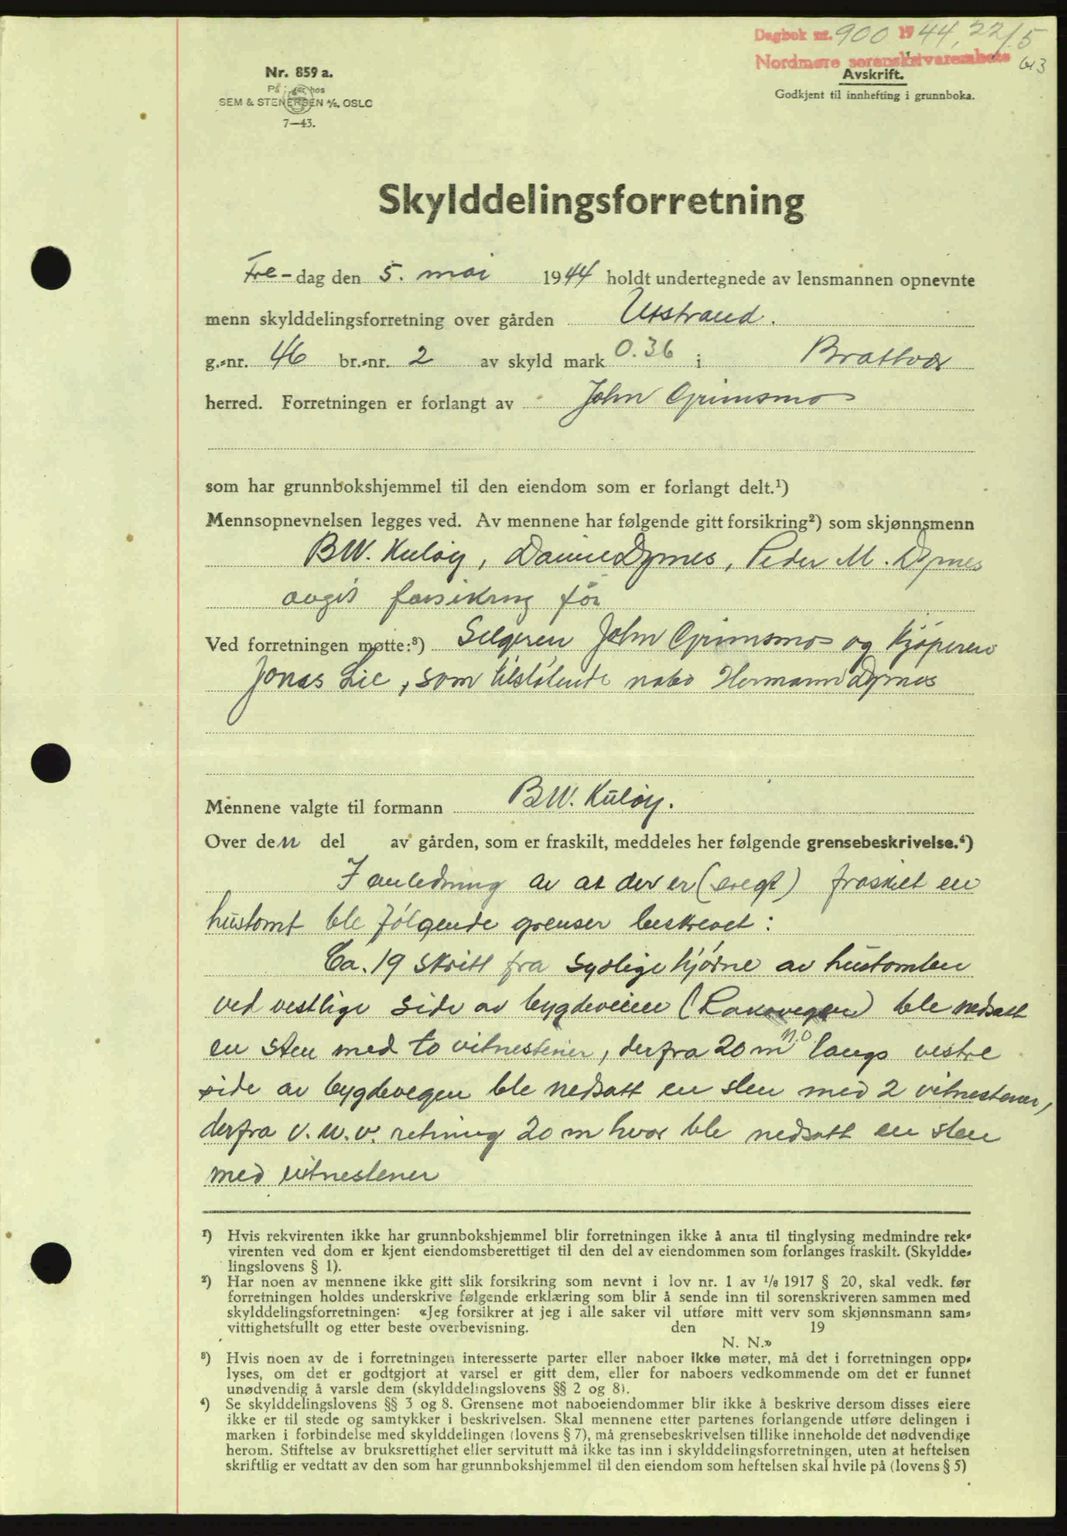 Dagbok nr. 900 1944, 22/5
Nordmøre sorenskrivarembete
Nr. 859 a.
På lager hos
SEM & STENERSEN A/S, OSLO
7—43.
Avskrift.
Godkjent til innhefting i grunnboka.
Skylddelingsforretning
Fre-dag den 5. mai 1944 holdt undertegnede av lensmannen opnevnte
menn skylddelingsforretning over gården Utstrand.
g.-nr. 46 br.-nr. 2 av skyld mark 0.36 i Brattvær
herred. Forretningen er forlangt av John Grimsmo
som har grunnbokshjemmel til den eiendom som er forlangt delt.¹)
Mennsopnevnelsen legges ved. Av mennene har følgende gitt forsikring²) som skjønnsmenn
B.W. Kuløy, Daniel Dyrnes, Peder M. Dyrnes
avgit forsikring før
Ved forretningen møtte:³) Selgeren John Grimsmo og kjøperen
Jonas Lie, som tilstøtende nabo Hermann Dyrnes
Mennene valgte til formann B.W. Kuløy.
Over den del av gården, som er fraskilt, meddeles her følgende grensebeskrivelse.⁴)
I anledning av at der er fraskilt en
hustomt ble følgende grenser beskrevet:
Ca. 19 skritt fra sydlige hjørne av hustomten
ved vestlige side av bygdeveien ble nedsatt
en sten med to vitnestener, derfra 20 m n.o langs vestre
side av bygdevegen ble nedsatt en sten med 2 vitnestener,
derfra v.n.v. retning 20 m hvor ble nedsatt en sten
med vitnestener
¹) Hvis rekvirenten ikke har grunnbokshjemmel blir forretningen ikke å anta til tinglysing medmindre rek-
virenten ved dom er kjent eiendomsberettiget til den del av eiendommen som forlanges fraskilt. (Skyldde-
lingslovens § 1).
²) Har noen av mennene ikke gitt slik forsikring som nevnt i lov nr. 1 av 1/8 1917 § 20, skal vedk. før
forretningen holdes underskrive følgende erklæring som blir å sende inn til sorenskriveren sammen med
skylddelingsforretningen: «Jeg forsikrer at jeg i alle saker vil utføre mitt verv som skjønnsmann sam-
vittighetsfullt og etter beste overbevisning. den 19
N. N.»
³) Hvis noen av de i forretningen interesserte parter eller naboer ikke møter, må det i forretningen opp-
lyses, om det er godtgjort at varsel er gitt dem, eller for naboers vedkommende om det er funnet
unødvendig å varsle dem (skylddelingslovens §§ 2 og 8).
⁴) Se skylddelingslovens §§ 3 og 8. Grensene mot naboeiendommer blir ikke å beskrive dersom disses eiere
ikke er til stede og samtykker i beskrivelsen. Skal mennene etter partenes forlangende utføre delingen i
marken i forbindelse med skylddelingen (lovens § 7), må grensebeskrivelsen tillike inneholde det nødvendige
herom. Stiftelse av bruksrettighet eller servitutt må ikke tas inn i skylddelingsforretningen, uten at heftelsen
skriftlig er vedtatt av den som har grunnbokshjemmel til den eiendom som heftelsen skal hvile på (lovens § 5)